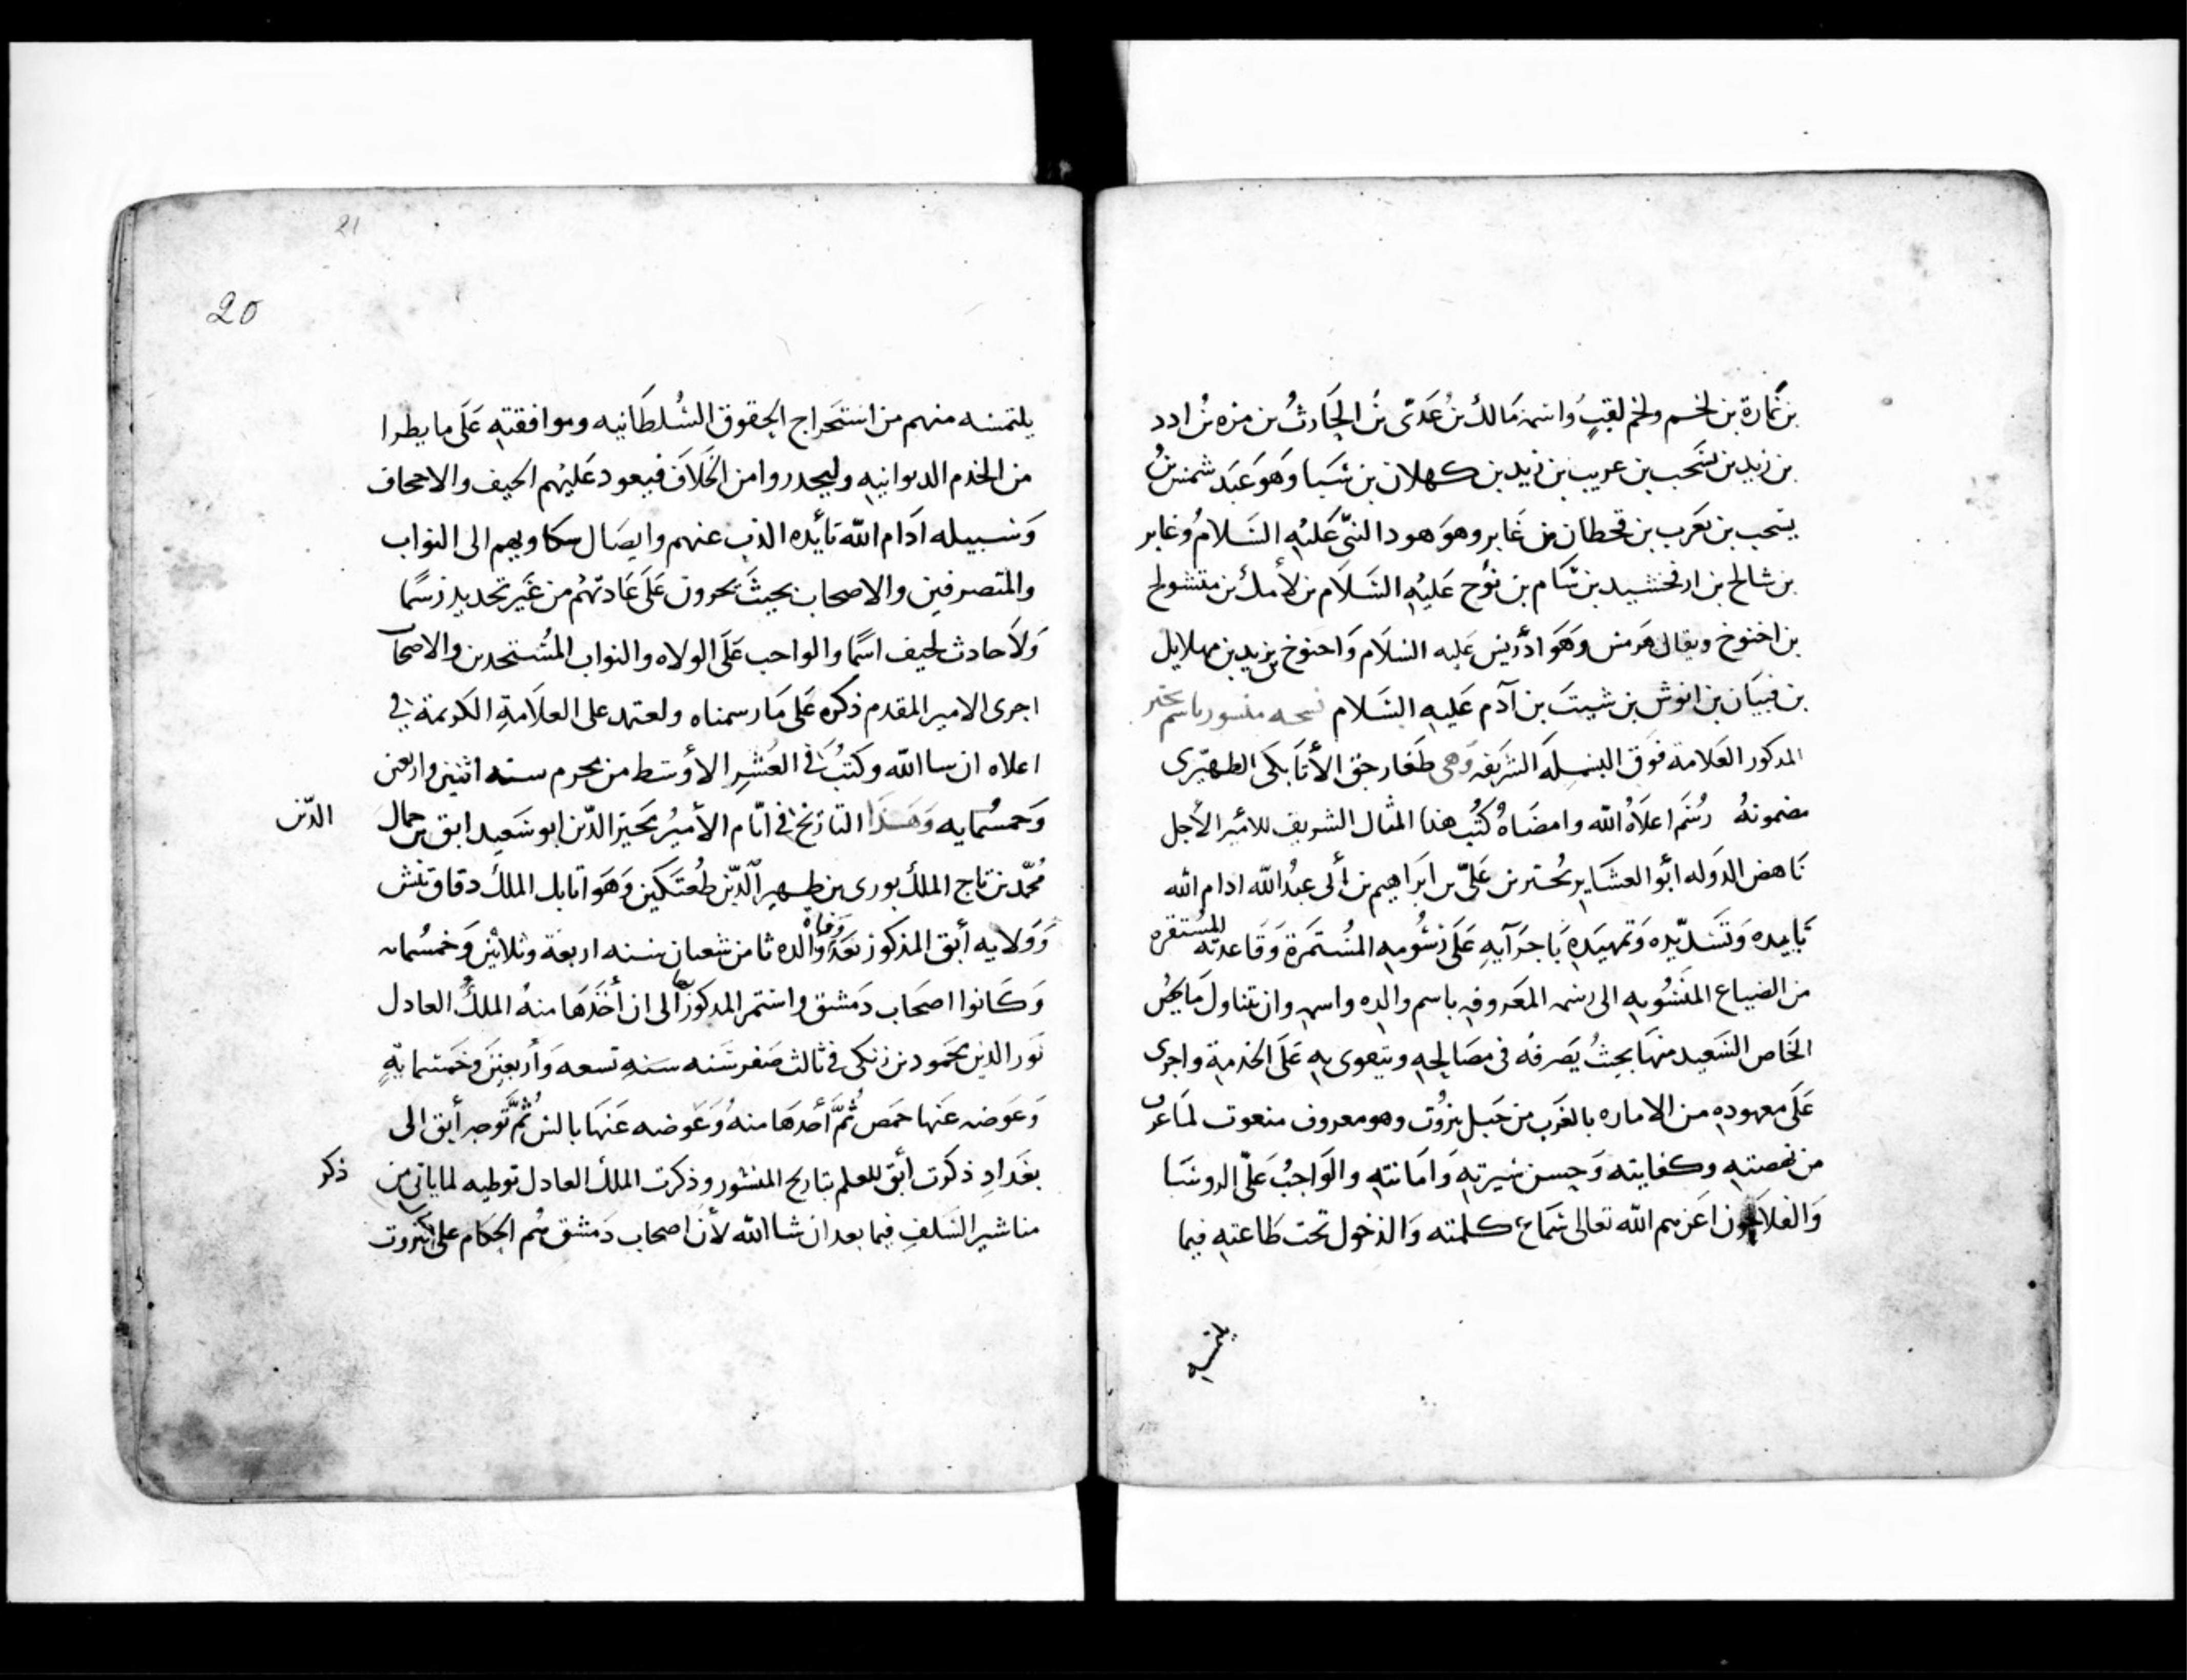 بن نمارة بن لخم ولخم لقب واسمه مالك بن عدى بن الحارث بن مره بن ادد
بن زيد بن يشحب بن عريب بن زيد بن كهلان بن سبا وهو عبد شمس بن
يشحب بن يعرب بن قحطان بن غابر وهو هود النبى عليه السلام وغابر
بن شالخ بن ارفخشيد بن سام بن نوح عليه السلام بن لأمك بن متشولخ
بن اخنوخ ويقال هرمس وهو ادريس عليه السلام واخنوخ بن يزيد بن مهلايل
بن قينان بن انوش بن شيث بن آدم عليه السلام نسخه منشور باسم بحتر
المذكور العلامة فوق البسمله الشريفه وهى طغار حق الأتابكى الظهيرى
مضمونه رسم اعلاه الله وامضاه كتب هذا المثال الشريف للامير الأجل
ناهض الدوله ابو العشاير بحتر بن على بن ابراهيم بن أبى عبد الله ادام الله
تاييده وتسديده وتمهيده باجرآيه على رسومه المستمرة وقاعدته المستقره
من الضياع المنسوبه الى رسمه المعروفه باسم والده واسمه وان يتناول ما يخص
الخاص السعيد منها بحيث يصرفه فى مصالحه ويتقوى به على الخدمة واجرى
على معهوده من الاماره بالغرب من جبل بيروت وهو معروف منعوت لما عرف
من نهضته وكفايته وحسن سيرته وامانته والواجب على الروسا
والفلاحون اعزهم الله تعالى سماع كلمته والدخول تحت طاعته فيما
يلتمسه
21
20
يلتمسه منهم من استخراج الحقوق السلطانيه وموافقته على ما يطرا
من الخدم الديوانيه وليحدروا من الخلاف فيعود عليهم الحيف والاجحاف
وسبيله ادام الله تأئيده الذب عنهم وايصال شكاويهم الى النواب
والمتصرفين والاصحاب بحيث يجرون على عادتهم من غير تجديد رسما
ولا حادث لحيف اسما والواجب على الولاه والنواب المستخدمن والاصحاب
اجرى الامير المقدم ذكره على ما رسمناه ولعتمد على العلامة الكريمة فى
اعلاه ان سا الله وكتب فى العشر الأوسط من محرم سنه اثنين واربعين
وخمسمايه وهذا التاريخ فى ايام الأمير مجير الدين ابو سعيد ابق بن جمال الدين
محمد بن تاج الملك بورى بن ظهير الدين طغتكين وهو اتابك الملك دقاق تتش
وولايه أبق المذكور بعد وفاة والده ثامن شعبان سنه اربعة وثلاثين وخمسمايه
وكانوا اصحاب دمشق واستمر المذكور بها الى ان أخذها منه الملك العادل
نور الدين محمود بن زنكى فى ثالث صفر سنه سنه تسعه وأربعين وخمسماية
وعوضه عنها حمص ثم أخدها منه وعوضه عنها بالس ثم توجه أبق الى
بغداد ذكرت أبق للعلم بتاريخ المنشور وذكرت الملك العادل توطيه لما ياتى من ذكر
مناشير السلف فيما بعد ان شا الله لأن اصحاب دمشق هم الحكام على بيروت